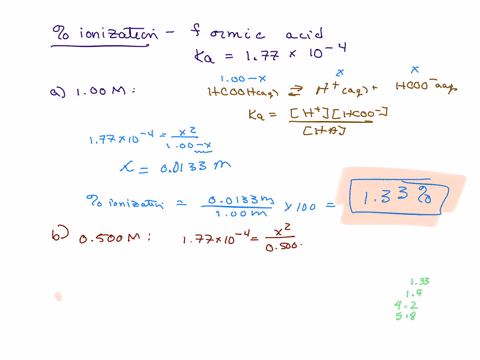 % ionization - formic acid
Ka = 1.77 × 10⁻⁴
1.00-x x x
a) 1.00 M: HCOOH(aq) ⇌ H⁺(aq) + HCOO⁻(aq)
Ka = [H⁺][HCOO⁻] / [HA]
1.77×10⁻⁴ = x² / 1.00-x
x = 0.0133 m
% ionization = 0.0133m / 1.00m × 100 = 1.33%
b) 0.500 M: 1.77×10⁻⁴ = x² / 0.500.
1.33
1.9
4.2
5.8